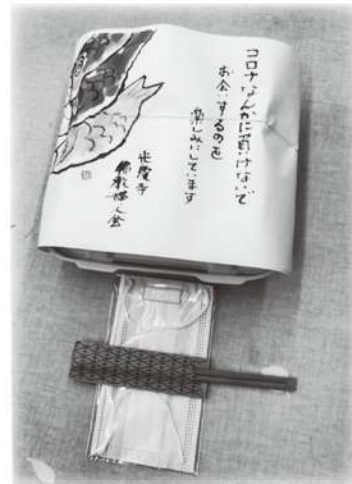 コロナなんかに負けないで
お会いするのを
楽しみにしています
光慶寺
佛教婦人会